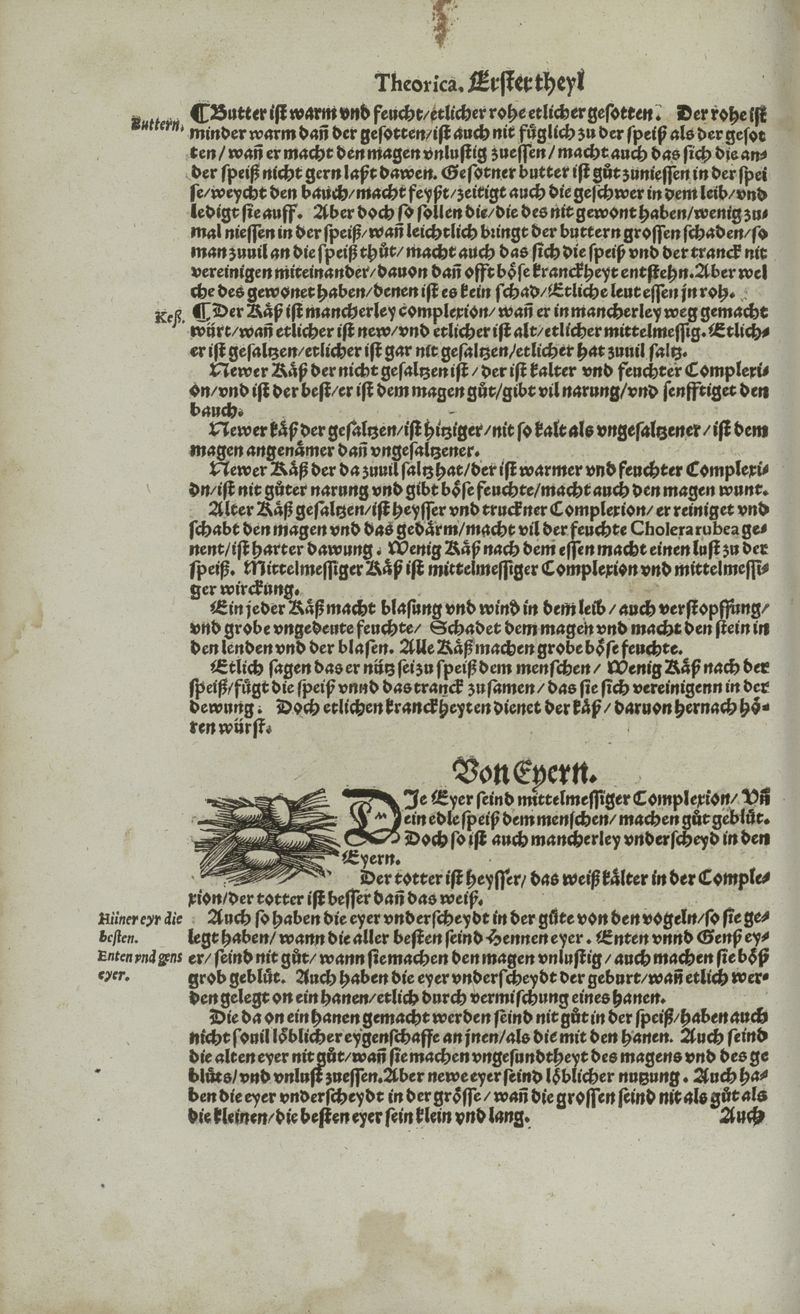 Theorica. Erster theyl
Buttern.
¶Butter ist warm vnd feucht/etlicher rohe etlicher gesotten. Der rohe ist
minder warm dañ der gesotten/ist auch nit fůglich zu der speiß als der gesot
ten/wañ er macht den magen vnlustig zuessen/macht auch das sich die an⸗
der speiß nicht gern laßt dawen. Gesotner butter ist gůt zuniessen in der spei
se/weycht den bauch/macht feyßt/zeitigt auch die geschwer in dem leib/vnd
ledigt sie auff. Aber doch so sollen die/die des nit gewont haben/wenig zu⸗
mal niessen in der speiß/wañ leichtlich bringt der buttern grossen schaden/so
man zuuil an die speiß thůt/macht auch das sich die speiß vnd der tranck nit
vereinigen miteinander/dauon dañ offt böse kranckheyt entstehn.Aber wel
che des gewonet haben/denen ist es kein schad/Etliche leut essen jn roh.
Keß.
¶Der Käß ist mancherley complexion/wañ er in mancherley weg gemacht
würt/wañ etlicher ist new/vnd etlicher ist alt/etlicher mittelmessig.Etlich⸗
er ist gesaltzen/etlicher ist gar nit gesaltzen/etlicher hat zuuil saltz.
Newer Käß der nicht gesaltzen ist/der ist kalter vnd feuchter Complexi⸗
on/vnd ist der best/er ist dem magen gůt/gibt vil narung/vnd senfftiget den
bauch.
Newer käß der gesaltzen/ist hitziger/nit so kalt als vngesaltzener/ist dem
magen angenämer dañ vngesaltzener.
Newer Käß der da zuuil saltz hat/der ist warmer vnd feuchter Complexi⸗
on/ist nit gůter narung vnd gibt böse feuchte/macht auch den magen wunt.
Alter Käß gesaltzen/ist heysser vnd truckner Complexion/er reiniget vnd
schabt den magen vnd das gedärm/macht vil der feuchte Cholera rubea ge⸗
nent/ist harter dawung. Wenig Käß nach dem essen macht einen lust zu der
speiß. Mittelmessiger Käß ist mittelmessiger Complexion vnd mittelmessi⸗
ger wirckung.
Ein jeder Käß macht blasung vnd wind in dem leib/auch verstopffung/
vnd grobe vngedeute feuchte/ Schadet dem magen vnd macht den stein in
den lenden vnd der blasen. Alle Käß machen grobe böse feuchte.
Etlich sagen das er nütz sei zu speiß dem menschen/ Wenig Käß nach der
speiß/fügt die speiß vnnd das tranck zusamen/das sie sich vereinigenn in der
dewung. Doch etlichen kranckheyten dienet der käß/daruon hernach hö⸗
ren würst.
Von Eyern.
DIe Eyer seind mittelmessiger Complexion/ Vñ
ein edle speiß dem menschen/machen gůt geblůt.
Doch so ist auch mancherley vnderscheyd in den
Eyern.
Der totter ist heysser/das weiß kälter in der Comple⸗
xion/der totter ist besser dañ das weiß.
Hüner eyr die
besten.
Auch so haben die eyer vnderscheydt in der gůte von den vogeln/so sie ge⸗
legt haben/wann die aller besten seind Hennen eyer. Enten vnnd Genß ey⸗
Enten vnd gens
eyer.
er/seind nit gůt/wann sie machen den magen vnlustig/auch machen sie böß
grob geblůt. Auch haben die eyer vnderscheydt der geburt/wañ etlich wer⸗
den gelegt on ein hanen/etlich durch vermischung eines hanen.
Die da on ein hanen gemacht werden seind nit gůt in der speiß/haben auch
nicht souil löblicher eygenschaffe an jnen/als die mit den hanen. Auch seind
die alten eyer nit gůt/wañ sie machen vngesundtheyt des magens vnd des ge
blůts/vnd vnlust zuessen.Aber newe eyer seind löblicher nutzung. Auch ha⸗
ben die eyer vnderscheydt in der grösse/wañ die grossen seind nit als gůt als
die kleinen/die besten eyer sein klein vnd lang.
Auch